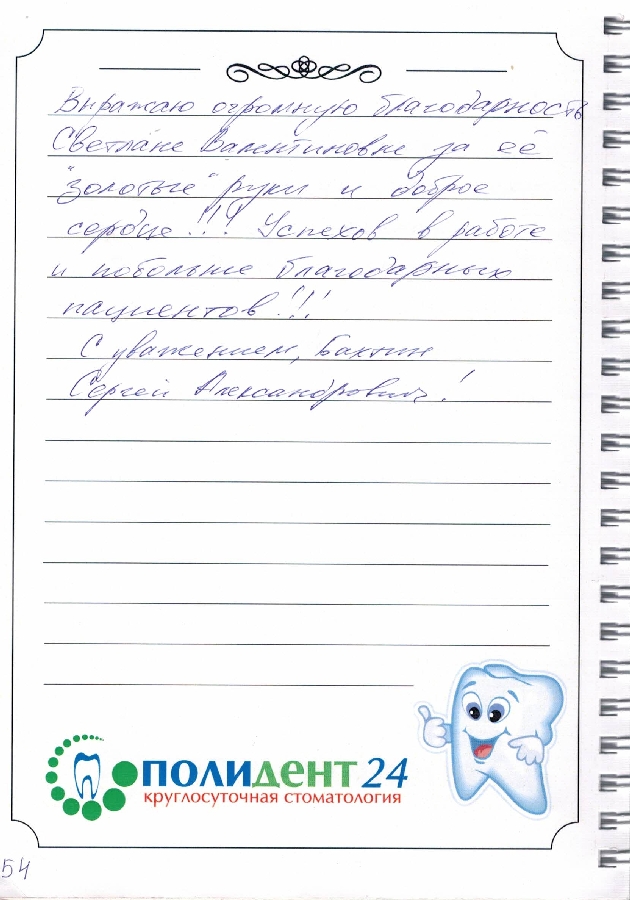 Выражаю огромную благодарность
Светлане Валентиновне за её
"золотые" руки и доброе
сердце!!! Успехов в работе
и побольше благодарных
пациентов!!!
С уважением, Бахтин
Сергей Александрович!
ПОЛИДЕНТ 24
круглосуточная стоматология
54